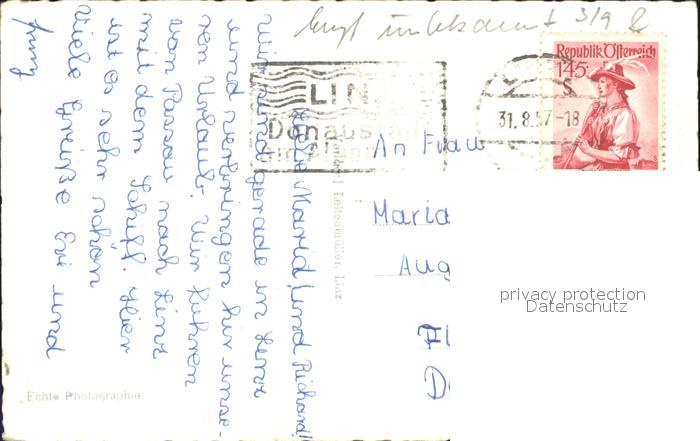 Empf unbekannt 3/9
Republik Österreich
145
S
LIN
Donaustad
31.8.57-18
An Frau
Maria
Aug
Liebe Maria und Richard!
Wir sind gerade in Linz
und verbringen hier unse-
ren Urlaub. Wir fuhren
von Passau nach Linz
mit dem Schiff. Hier
ist es sehr schön
Viele Grüße Evi und
Leitenmüller, Linz
Echte Photographie
privacy protection
Datenschutz